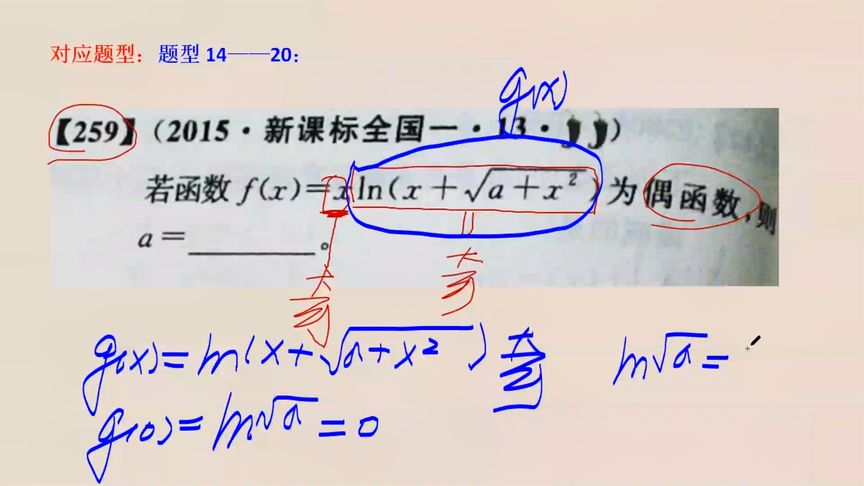 对应题型：题型 14——20：
g(x)
【259】（2015·新课标全国一·13·）
若函数 f(x)=x ln(x+√(a+x²)) 为偶函数，则
a=________。
奇 奇
g(x)=ln(x+√(a+x²)) 奇 ln√a=
g(0)=ln√a=0